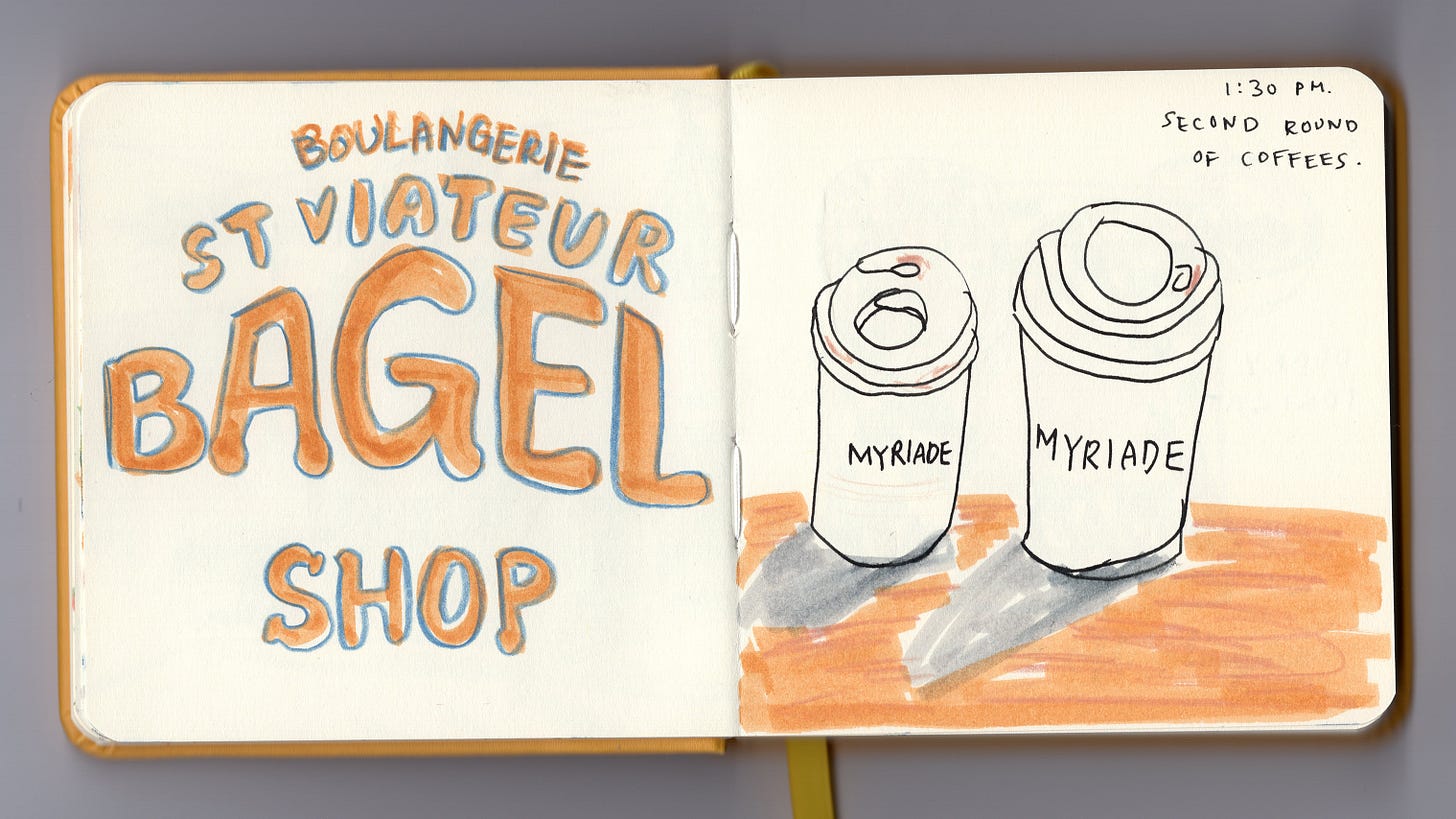 BOULANGERIE
ST VIATEUR
BAGEL
SHOP
1:30 PM.
SECOND ROUND
OF COFFEES.
MYRIADE
MYRIADE